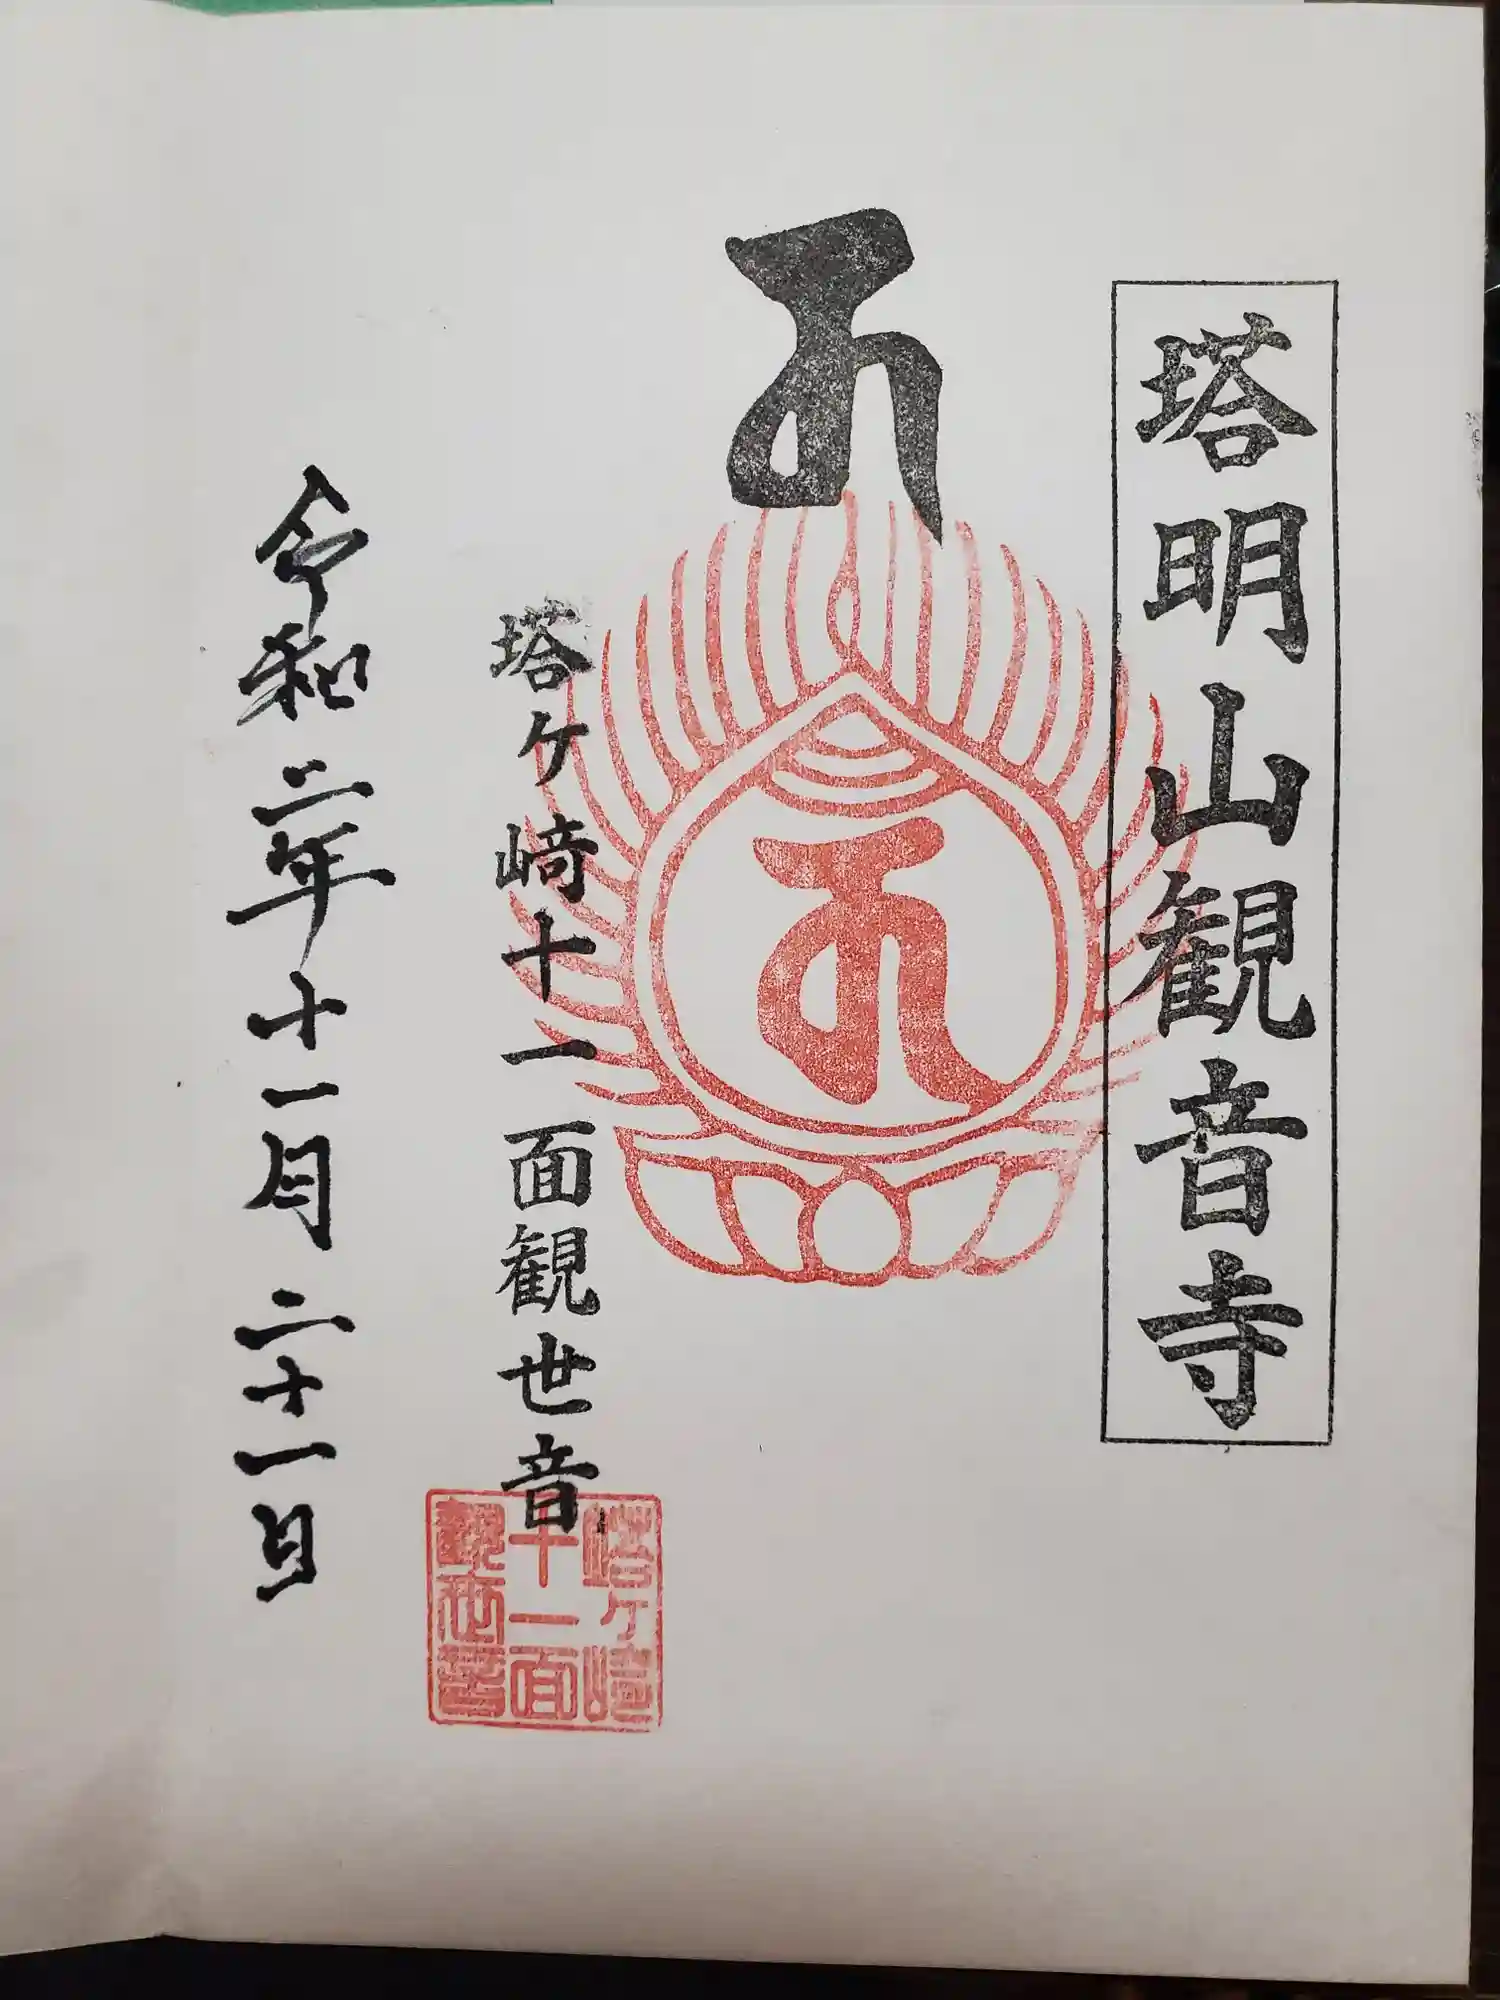 塔明山観音寺
塔ケ﨑十一面観世音
令和二年十一月二十一日
塔ケ﨑
十一面
観世音